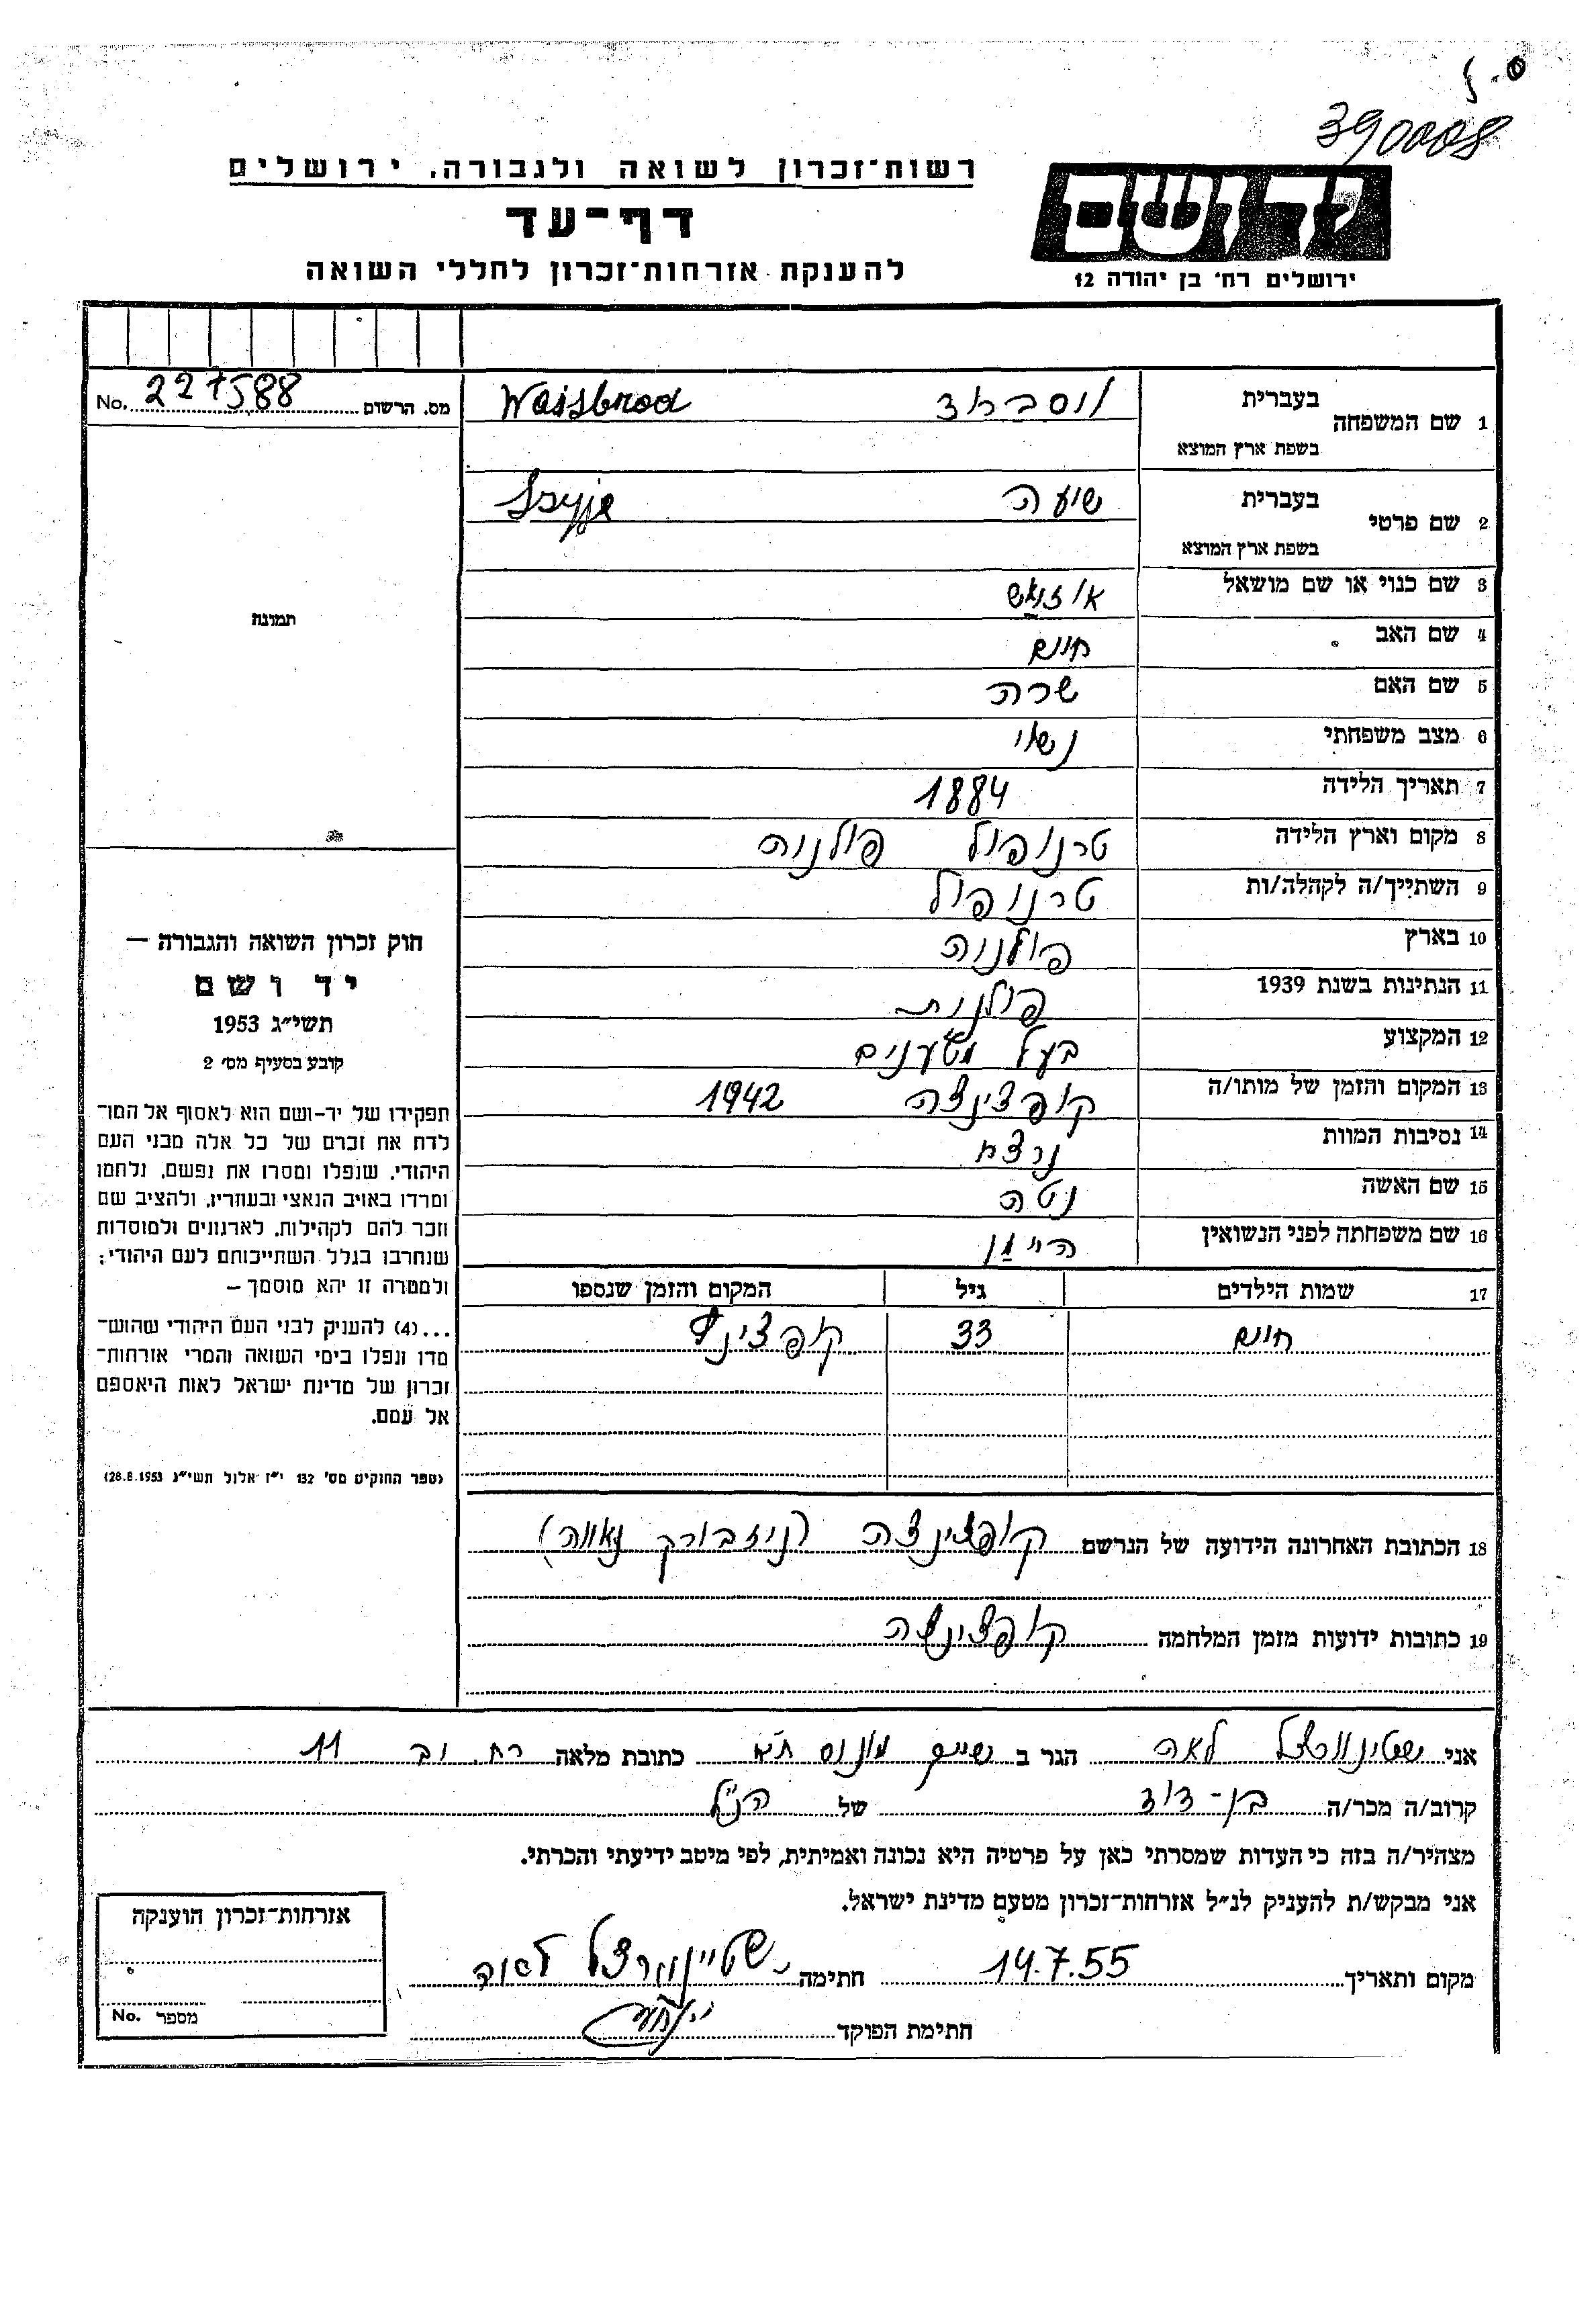 390008
רשות־זכרון לשואה ולגבורה, ירושלים
דף־עד
להענקת אזרחות־זכרון לחללי השואה
יד ושם
ירושלים רח' בן יהודה 12
No. 227588 מס. הרשום
1 שם המשפחה בעברית Waissbrod
בשפת ארץ המוצא
2 שם פרטי בעברית שיעה
בשפת ארץ המוצא
3 שם כנוי או שם מושאל
4 שם האב חיים
5 שם האם שרה
6 מצב משפחתי נשוי
7 תאריך הלידה 1884
8 מקום וארץ הלידה טרנופול פולניה
9 השתייך/ה לקהלה/ות טרנופול
10 בארץ פולניה
11 הנתינות בשנת 1939 פולנית
12 המקצוע בעל
13 המקום והזמן של מותו/ה קופצינצה 1942
14 נסיבות המוות נרצח
15 שם האשה נטה
16 שם משפחתה לפני הנשואין
17 שמות הילדים גיל המקום והזמן שנספו
חיים 33
18 הכתובת האחרונה הידועה של הנרשם קופצינצה
19 כתובות ידועות מזמן המלחמה קופצינצה
תמונה
חוק זכרון השואה והגבורה —
יד ושם
תשי״ג 1953
קובע בסעיף מס' 2
תפקידו של יד-ושם הוא לאסוף אל המו־
לדת את זכרם של כל אלה מבני העם
היהודי, שנפלו ומסרו את נפשם, נלחמו
ומרדו באויב הנאצי ובעוזריו, ולהציב שם
וזכר להם לקהילות, לארגונים ולמוסדות
שנחרבו בגלל השתייכותם לעם היהודי;
ולמטרה זו יהא מוסמך –
...(4) להעניק לבני העם היהודי שהוש־
מדו ונפלו בימי השואה והמרי אזרחות־
זכרון של מדינת ישראל לאות היאספם
אל עמם.
(ספר החוקים מס' 132 י״ז אלול תשי״ג 28.8.1953)
אני לאה הגר ב כתובת מלאה רח. 11
קרוב/ה מכר/ה בן-דוד של הנ״ל
מצהיר/ה בזה כי העדות שמסרתי כאן על פרטיה היא נכונה ואמיתית, לפי מיטב ידיעתי והכרתי.
אני מבקש/ת להעניק לנ״ל אזרחות־זכרון מטעם מדינת ישראל.
מקום ותאריך 14.7.55 חתימה
חתימת הפוקד
אזרחות־זכרון הוענקה
No. מספר